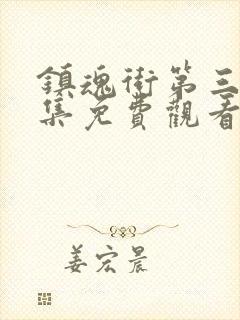 鎮魂街第三
集免費觀看
姜宏晨